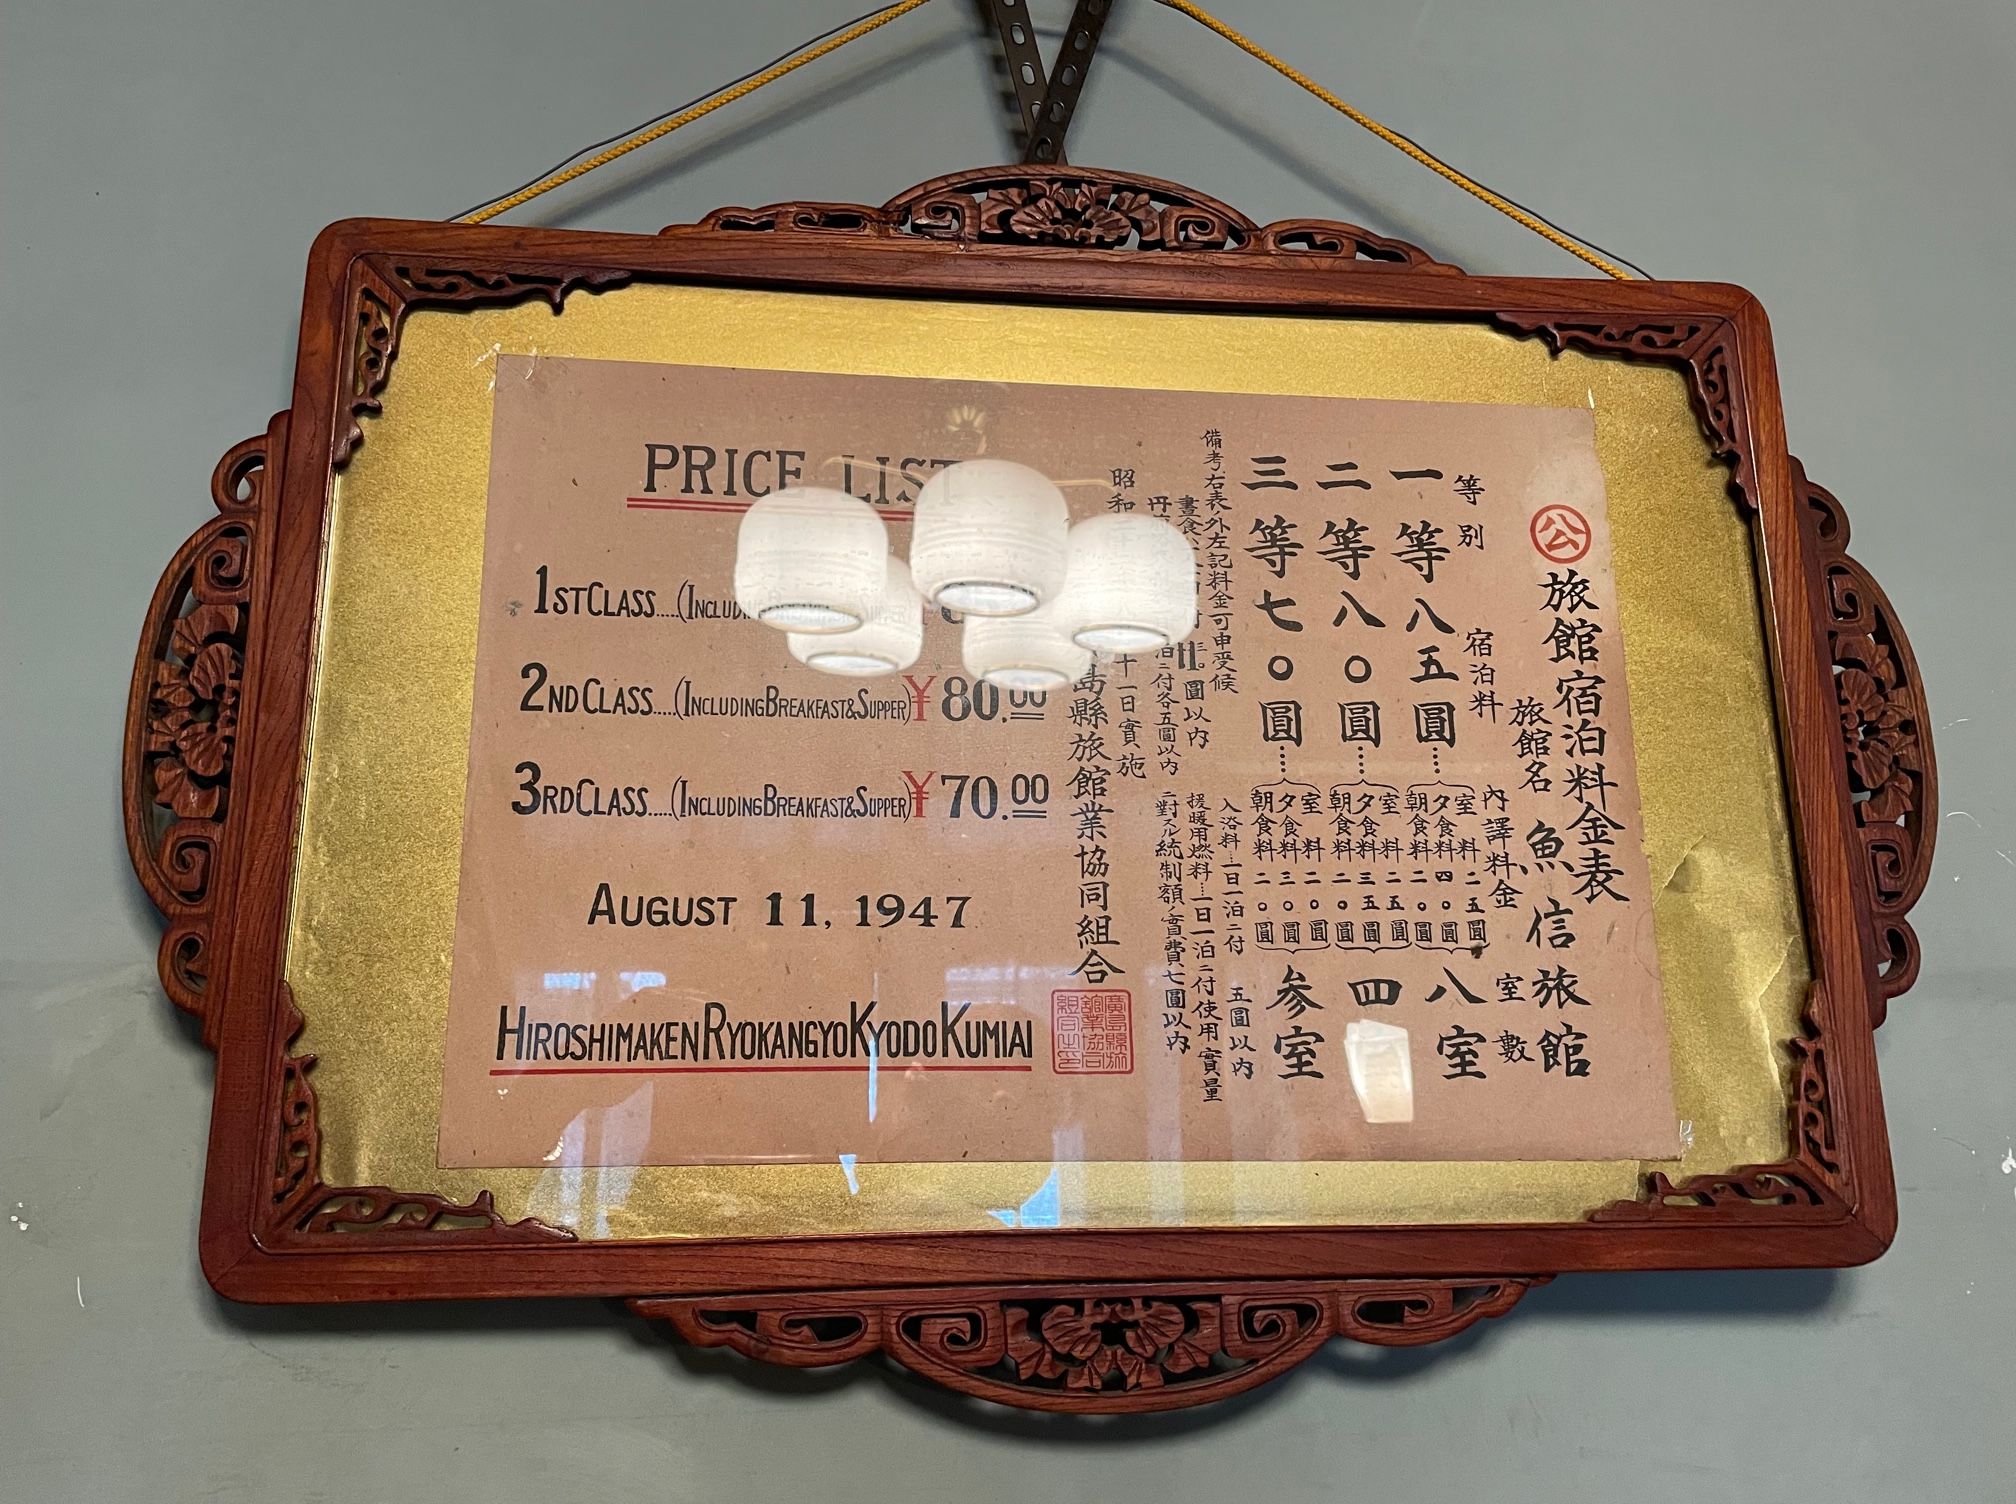 PRICE LIST
1ST CLASS.....(INCLUDING
2ND CLASS.....(INCLUDING BREAKFAST & SUPPER) ¥ 80.00
3RD CLASS.....(INCLUDING BREAKFAST & SUPPER) ¥ 70.00
AUGUST 11, 1947
HIROSHIMAKEN RYOKANGYO KYODO KUMIAI
公 旅館宿泊料金表
旅館名 魚信旅館
等別 宿泊料 內譯料金 室數
一等 八五圓…… 室料 二五圓 夕食料 四〇圓 朝食料 二〇圓 八室
二等 八〇圓…… 室料 二五圓 夕食料 三五圓 朝食料 二〇圓 四
三等 七〇圓…… 室料 二〇圓 夕食料 三〇圓 朝食料 二〇圓 参室
備考 右表ノ外左記料金可申受候
入浴料…一日一泊ニ付 五圓以内
晝食 三〇圓以内
援暖用燃料…一日一泊ニ付使用實量
泊ニ付各五圓以内
ニ對スル統制額ノ實費七圓以内
昭和二 十一日實施
島縣旅館業協同組合
廣島縣旅館業協同組合之印